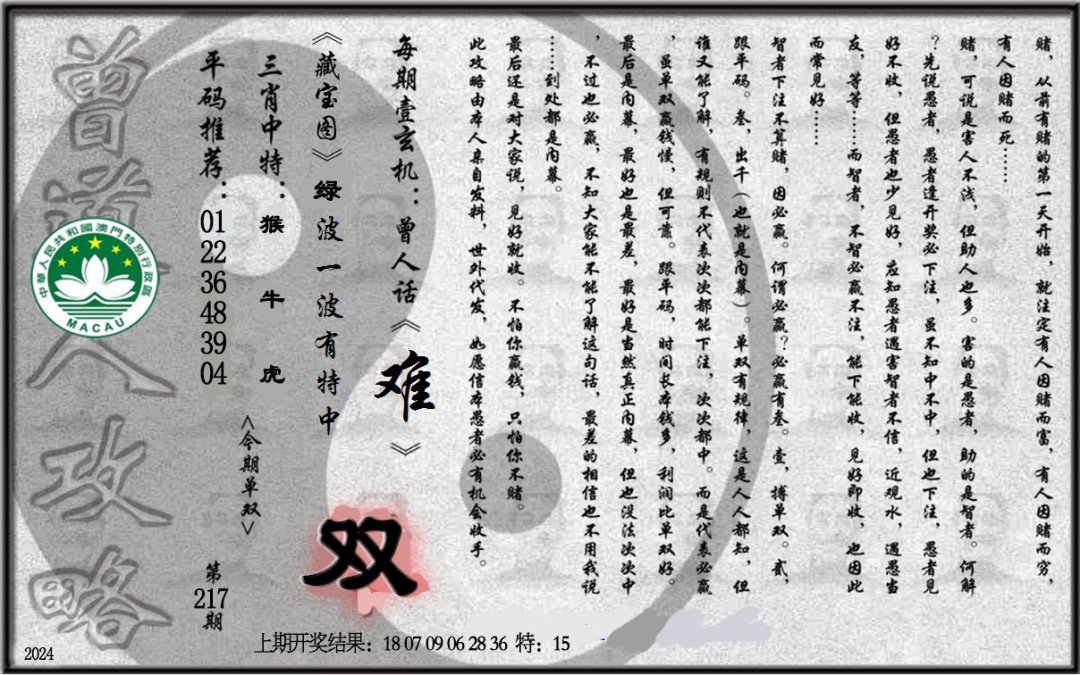 赌，从前有赌的第一天开始，就注定有人因赌而富，有人因赌而穷，
有人因赌而死……
赌，可说是害人不浅，但助人也多。害的是愚者，助的是智者。何解
？先说愚者，愚者逢开奖必下注，虽不知中不中，但也下注，愚者见
好不收，但愚者也少见好，应知愚者遇害智者不信，近观水，遇愚当
友，等等……而智者，不智必赢不注，能下能收，见好即收，也因此
而常见好……
智者下注不算赌，因必赢。何谓必赢？必赢有叁。壹，搏单双。贰，
跟平码。叁，出千（也就是内幕）。单双有规律，这是人人都知，但
谁又能了解，有规则不代表次次都能下注，次次都中。而是代表必赢
，虽单双赢钱慢，但可靠。跟平码，时间长本钱多，利润比单双好。
最后是内幕，最好也是最差，最好是当然真正内幕，但也没法次次中
，不过也必赢，不知大家能不能了解这句话，最差的相信也不用我说
……到处都是内幕。
最后还是对大家说，见好就收。不怕你赢钱，只怕你不赌。
此攻略由本人亲自发料，世外代发，如愿信本愚者必有机会收手。
每期壹玄机：曾人话《难》
《藏宝图》绿波一波有特中
双
三肖中特：猴 牛 虎
<今期单双>
平码推荐：01 22 36 48 39 04
第217期
曾道人攻略
中華人民共和國澳門特別行政區
MACAU
上期开奖结果：18 07 09 06 28 36 特：15
2024